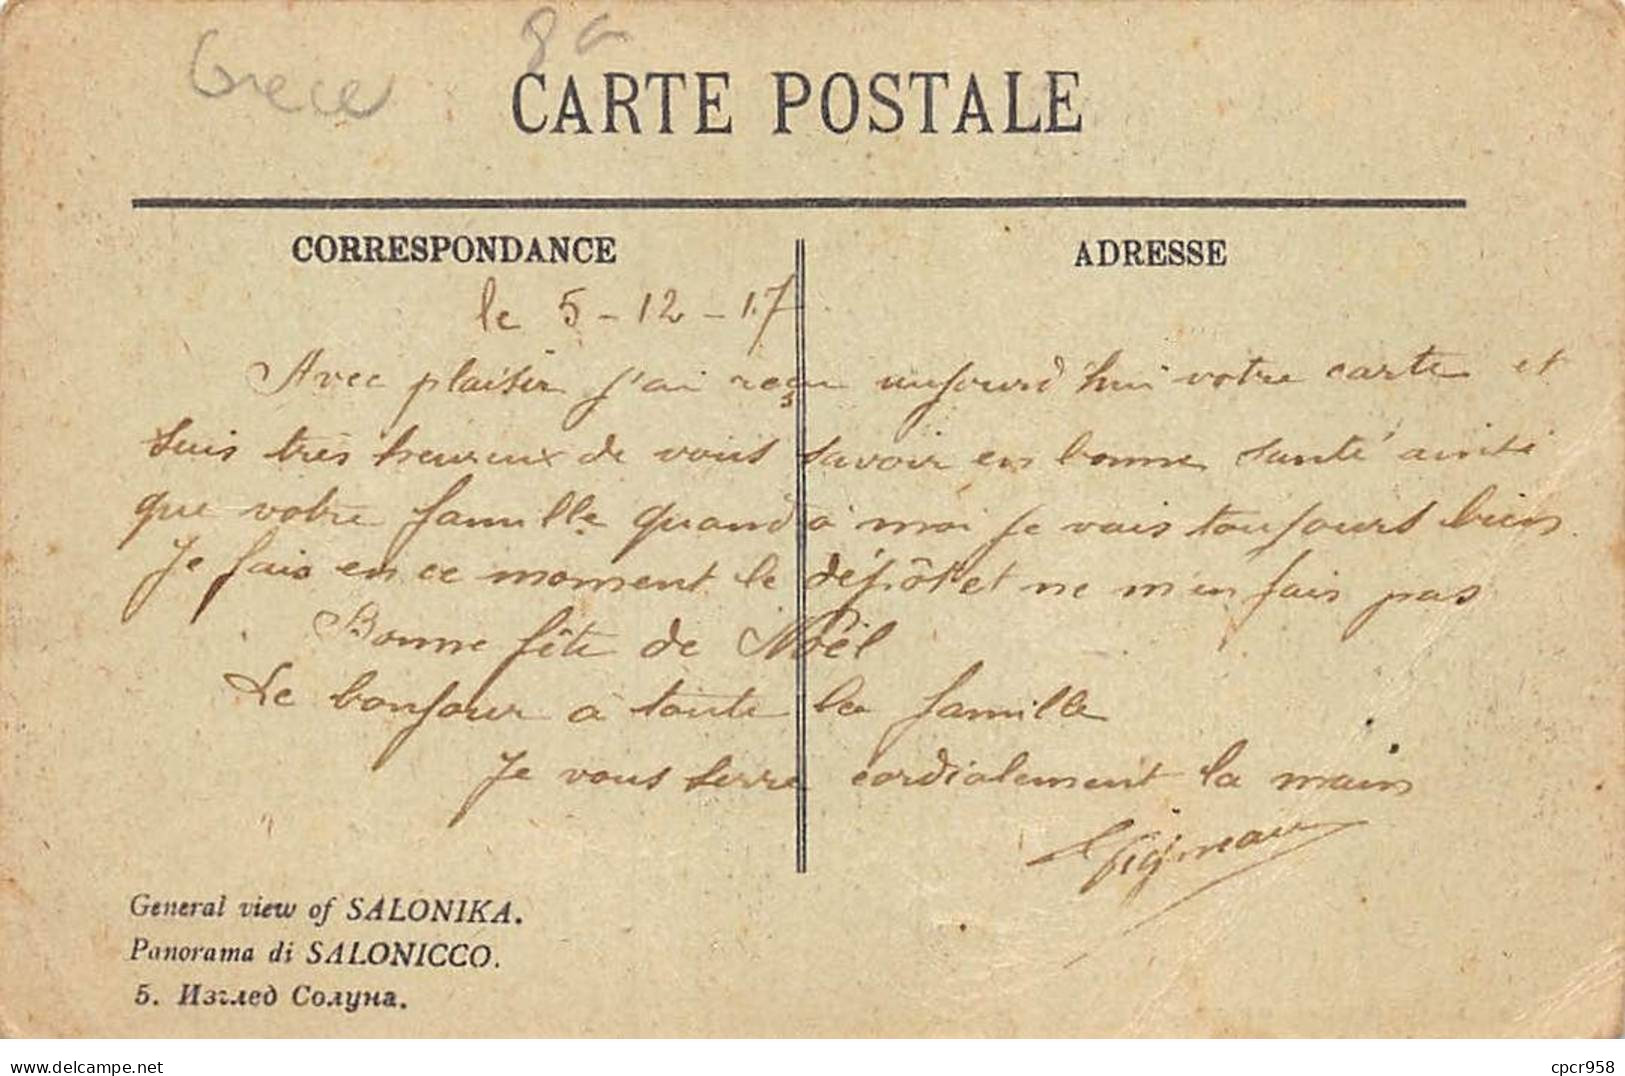 Grece 8€
CARTE POSTALE
CORRESPONDANCE
ADRESSE
le 5-12-17
Avec plaisir j'ai reçu aujourd'hui votre carte et
suis très heureux de vous savoir en bonne santé ainsi
que votre famille quand à moi je vais toujours bien.
Je fais en ce moment le dépôt et ne m'en fais pas
Bonne fête de Noël
Le bonjour à toute la famille
Je vous serre cordialement la main
General view of SALONIKA.
Panorama di SALONICCO.
5. Изглед Солуна.
www.delcampe.net
cpcr958